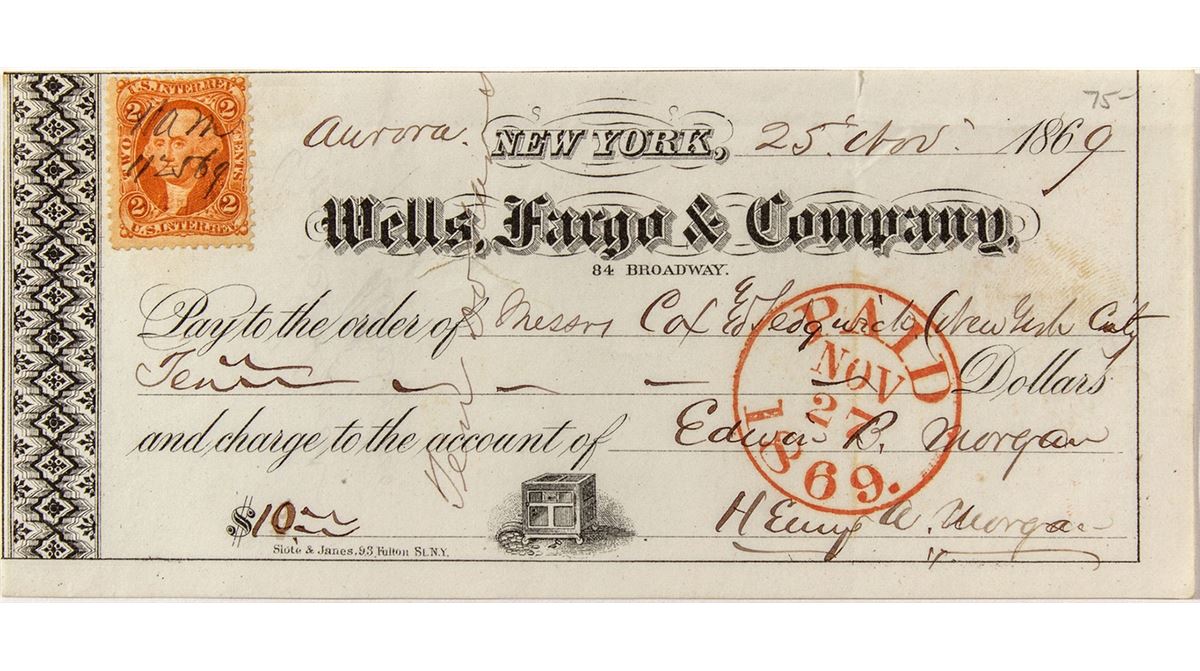 U.S. INTER. REV.
2 2
TWO CENTS
2 2
U.S. INTER. REV.
11 25 69
75-
Aurora. NEW YORK, 25 Nov. 1869
Wells, Fargo & Company,
84 BROADWAY.
Pay to the order of Messrs Cox (New York City
Ten Dollars
and charge to the account of Edwin B. Morgan
$10
Henry A. Morgan
Slote & Janes, 93, Fulton St. N.Y.
PAID
NOV
27
1869.
Ten Dollars